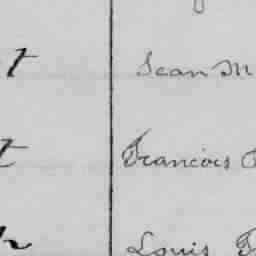 t Jean M
t Francois
Louis